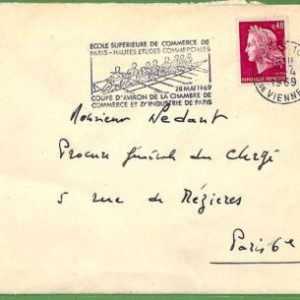 ECOLE SUPERIEURE DE COMMERCE DE
PARIS - HAUTES ETUDES COMMERCIALES
28 MAI 1969
COUPE D'AVIRON DE LA CHAMBRE DE
COMMERCE ET D'INDUSTRIE DE PARIS
0,40
REPUBLIQUE FRANCAISE
4
1969
VIENNE
Monsieur Ledant
Procure Générale du Clergé
5 rue de Mézières
Paris 6e